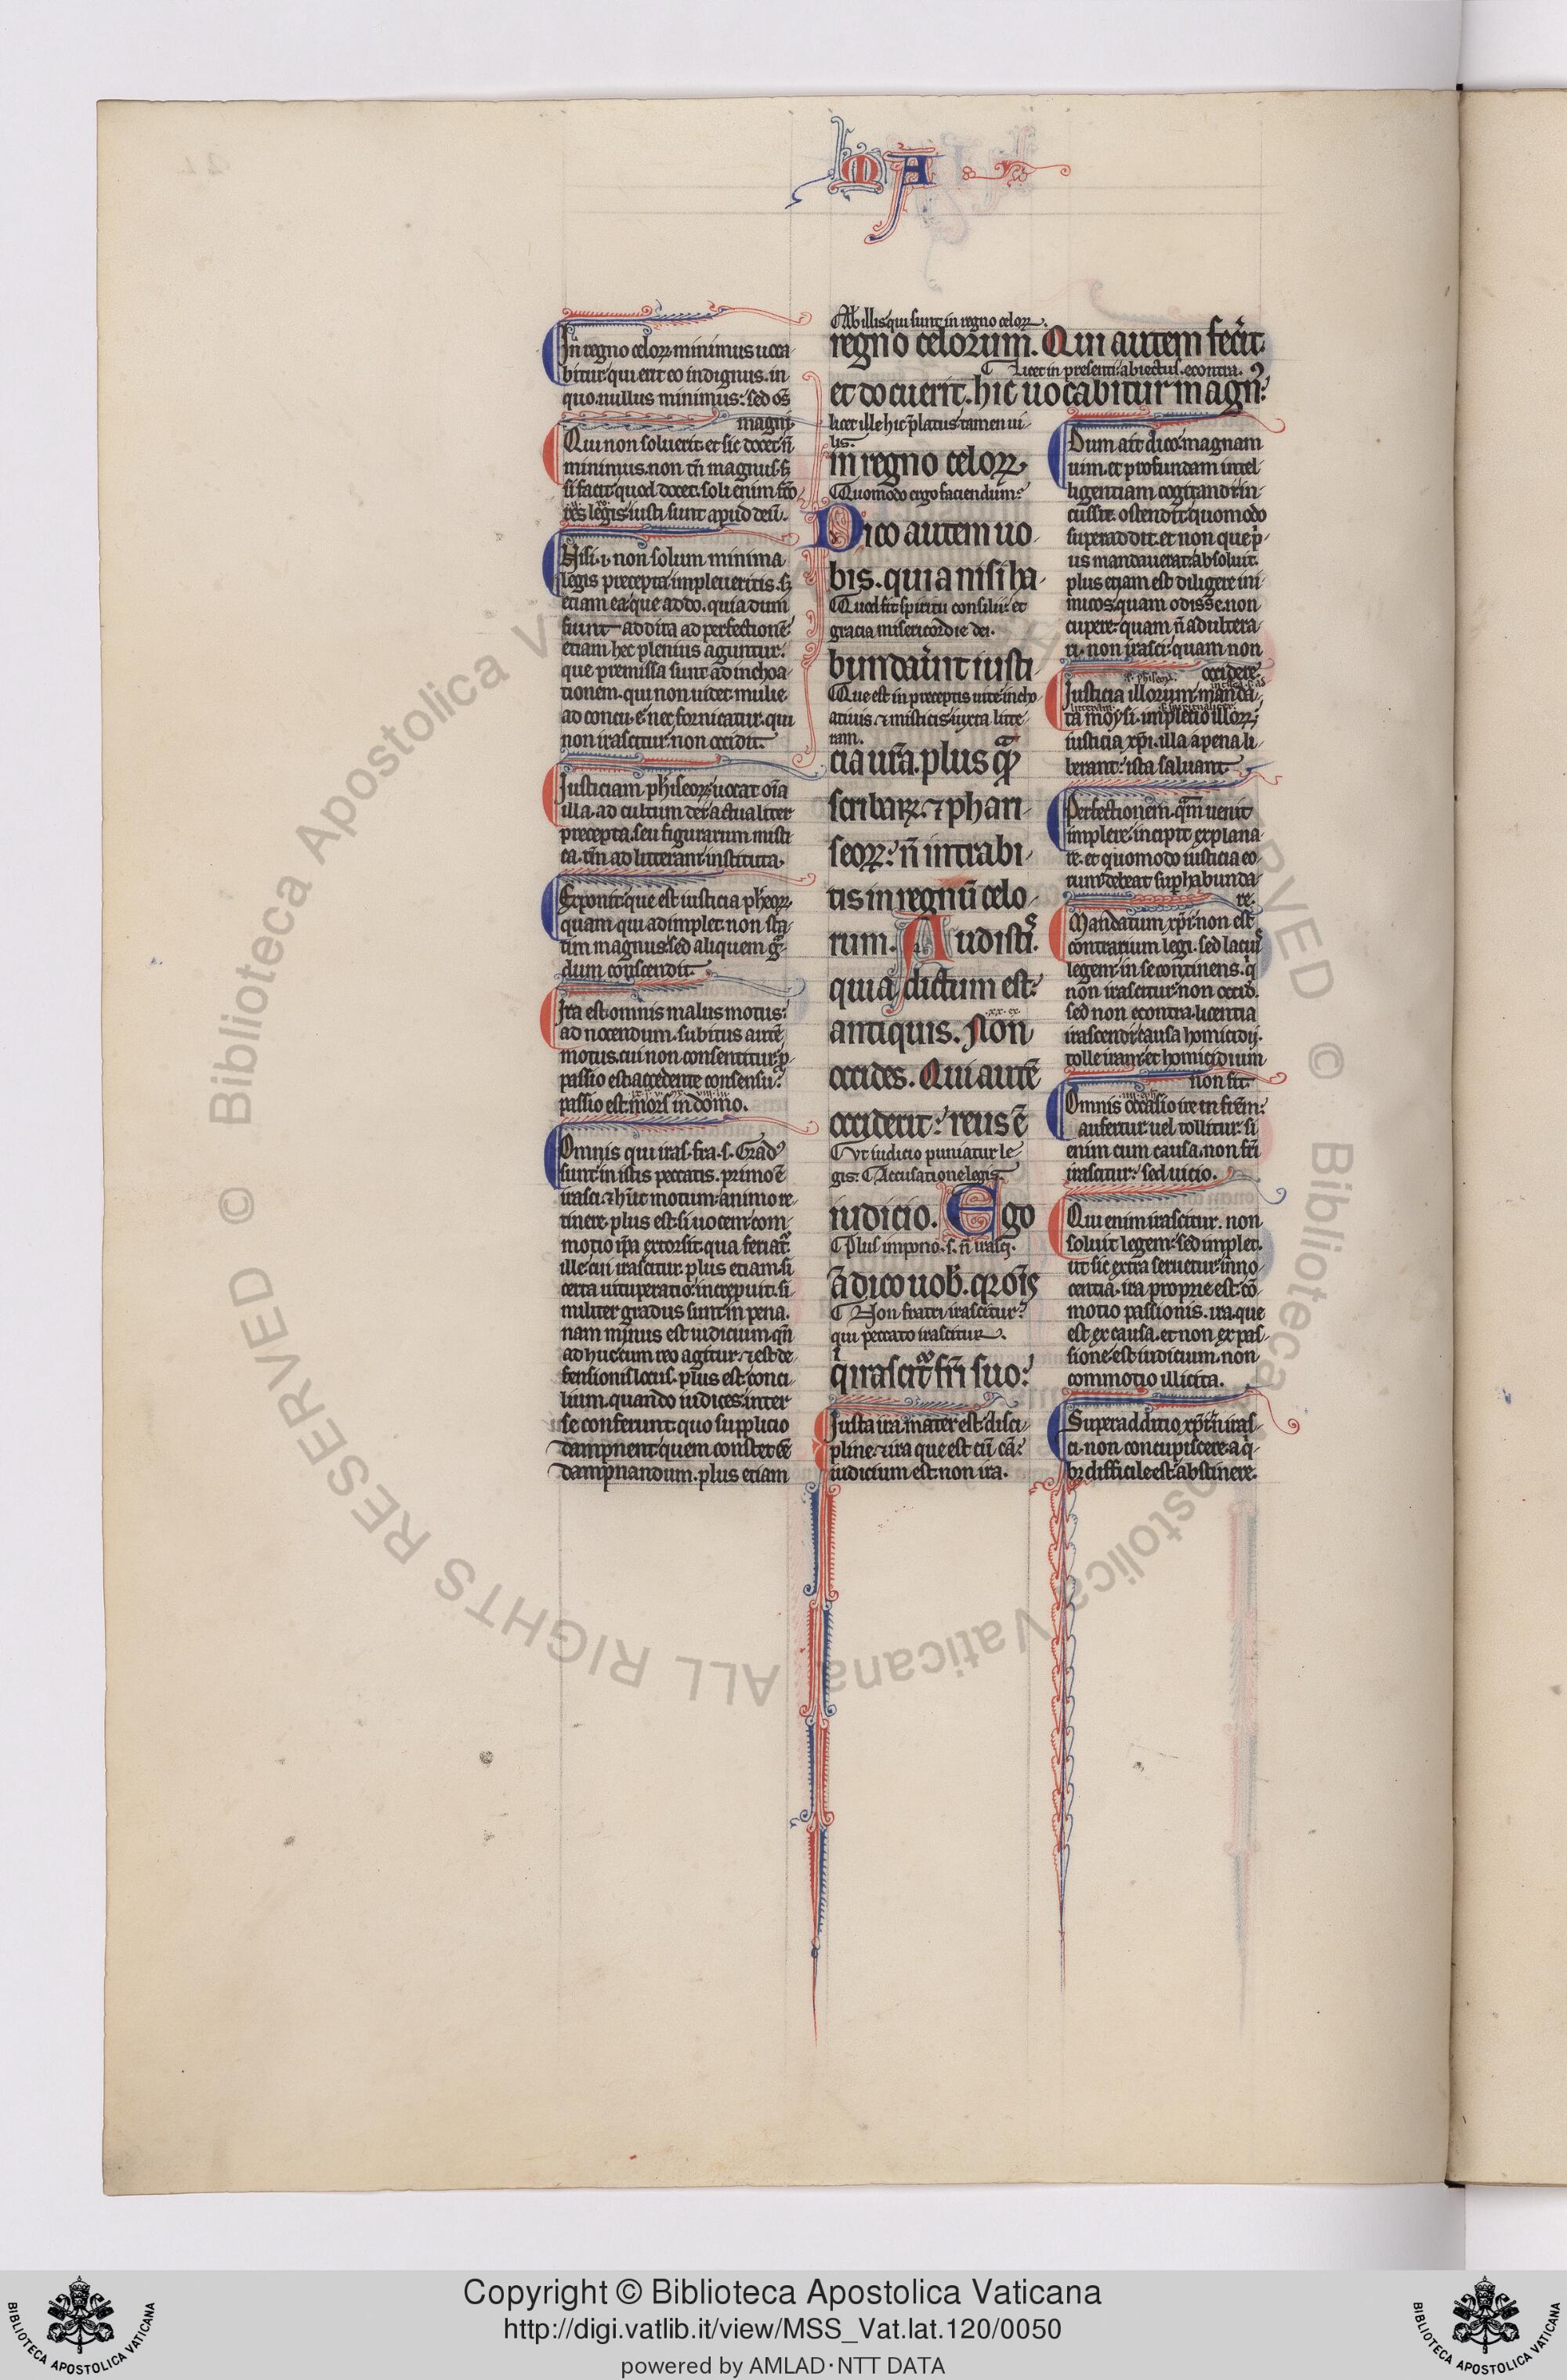 MA
In regno celoꝝ minimus uoca-
bitur qui erit eo indignus. in
quo nullus minimus: sed oēs
magni.
Qui non soluerit et sic docet n̄
minimus. non tn̄ magnus. sꝫ
si facit quod docet. soli enim fcō
res legis iusti sunt apud deū.
Nisi .i. non solum minima
legis precepta impleueritis. sꝫ
etiam ea que addo. quia dum
fiunt addita ad perfectionē:
etiam hec plenius aguntur:
que premissa sunt ad inchoa-
tionem. qui non uidet mulie.
ad concu. ē nec fornicatur. qui
non irascitur. non occidit.
Iusticiam phiseoꝝ uocat oīa
illa. ad cultum dei actualiter
precepta. seu figurarum misti
ca. tm̄ ad litteram instituta.
Exponit que est iusticia phseoꝝ.
quam qui adimplet. non sta-
tim magnus. sed aliquem gᵃ-
dum conscendit.
Ira est omnis malus motus:
ad nocendum. subitus autē
motus. cui non consentitur. ꝓ
passio est: accedente consensu:
passio est. mors in domo.
Omnis qui iras. fra. s. Gradꝰ
sunt in istis peccatis. primo ē
irasci. ⁊ hūc motum animo re-
tinere. plus est. si uocem com-
motio ip̄a extorsit. qua feriat᷑
ille cui irascitur. plus etiam. si
certa uituperatio increpuit. si-
militer gradus sunt in pena.
nam minus est iudicium. qn̄
adhuc cum reo agitur. ⁊ est de-
fensionis locus. plus est conci-
lium. quando iudices inter
se conferunt. quo supplicio
dampnent quem constet ēē
dampnandum. plus etiam
Ab illis qui sunt in regno celoꝝ.
regno celorum. Qui autem fecit
Licet in presenti abiectus. econtra.
et docuerit. hic uocabitur magnꝰ
licet ille hic p̄latus. tamen ui-
lis.
in regno celoꝝ.
Quomodo ergo faciendum:
Dico autem uo-
bis. quia nisi ha-
Quod fit spiritu consilii. et
gracia misericordie dei.
bundau̾it iusti-
Que est in preceptis uite incho-
atiuis. ⁊ misticis iuxta litte-
ram.
cia ur̄a. plus qᵃ
scribaꝝ. ⁊ phari-
seoꝝ: n̄ intrabi-
tis in regnū celo-
rum. Audistis
quia dictum est:
antiquis. Non
occides. Qui autē
occiderit: reus ē
Vt iudicio puniatur le-
gis: Accusatione legis.
iudicio. Ego
Plus impono .s. n̄ irasci.
ā dico uob. qꝛ om̄s
Non fratri irascitur:
qui peccato irascitur.
q irascit᷑ fr̄i suo:
Iusta ira. mater est disci-
pline. ⁊ ira que est cū cā:
iudicium est. non ira.
Dum ait dico. magnam
uim. et profundam intel-
ligentiam cogitandi in-
cussit. ostendit quomodo
superaddit. et non que p̾-
us mandauerat. absoluit.
plus etiam est diligere ini-
micos. quam odisse. non
cupere: quam n̄ adultera-
ri. non irasci: quam non
occidere.
Iusticia illorum. manda-
ta moysi. impletio illoꝝ.
iusticia xp̄i. illa a pena li-
berant: ista saluant.
Perfectionem. qᵃm uenit
implere. incipit explana-
re. et quomodo iusticia eo-
rum debeat sup̱habunda-
re.
Mandatum xp̄i. non est
contrarium legi. sed lacius
legem in se continens. q̾
non irascitur. non occid.
sed non econtra. licentia
irascendi. causa homicidij.
tolle iram. et homicidium
non fit.
Omnis occasio ire in frēm:
aufertur uel tollitur. si
enim cum causa. non fr̄i
irascitur: sed uicio.
Qui enim irascitur. non
soluit legem: sed implet.
ut sic extra seruetur inno-
centia. ira proprie est. cō-
motio passionis. ira. que
est ex causa. et non ex pas-
sione. est iudicium. non
commotio illicita.
Superadditio xp̄i. n̄ iras-
ci. non concupiscere. a q̾-
bꝫ difficile est abstinere.
© Biblioteca Apostolica Vaticana ALL RIGHTS RESERVED
Copyright © Biblioteca Apostolica Vaticana
http://digi.vatlib.it/view/MSS_Vat.lat.120/0050
powered by AMLAD·NTT DATA
BIBLIOTECA APOSTOLICA VATICANA
BIBLIOTECA APOSTOLICA VATICANA